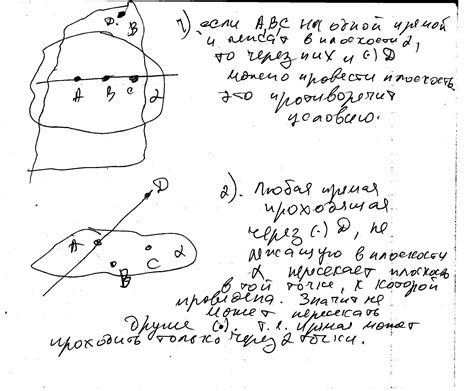 1) если А, В, С на одной прямой
и лежат в плоскости α,
то через них и (·) D
можно провести плоскость.
это противоречит
условию.
D
β
A B C α
2). Любая прямая
проходящая
через (·) D, не
лежащую в плоскости
α пересекает плоскость
в той точке, к которой
проведена. Значит не
может пересекать
другие (·). т.е. прямая может
проходить только через 2 точки.
D
A C α
B